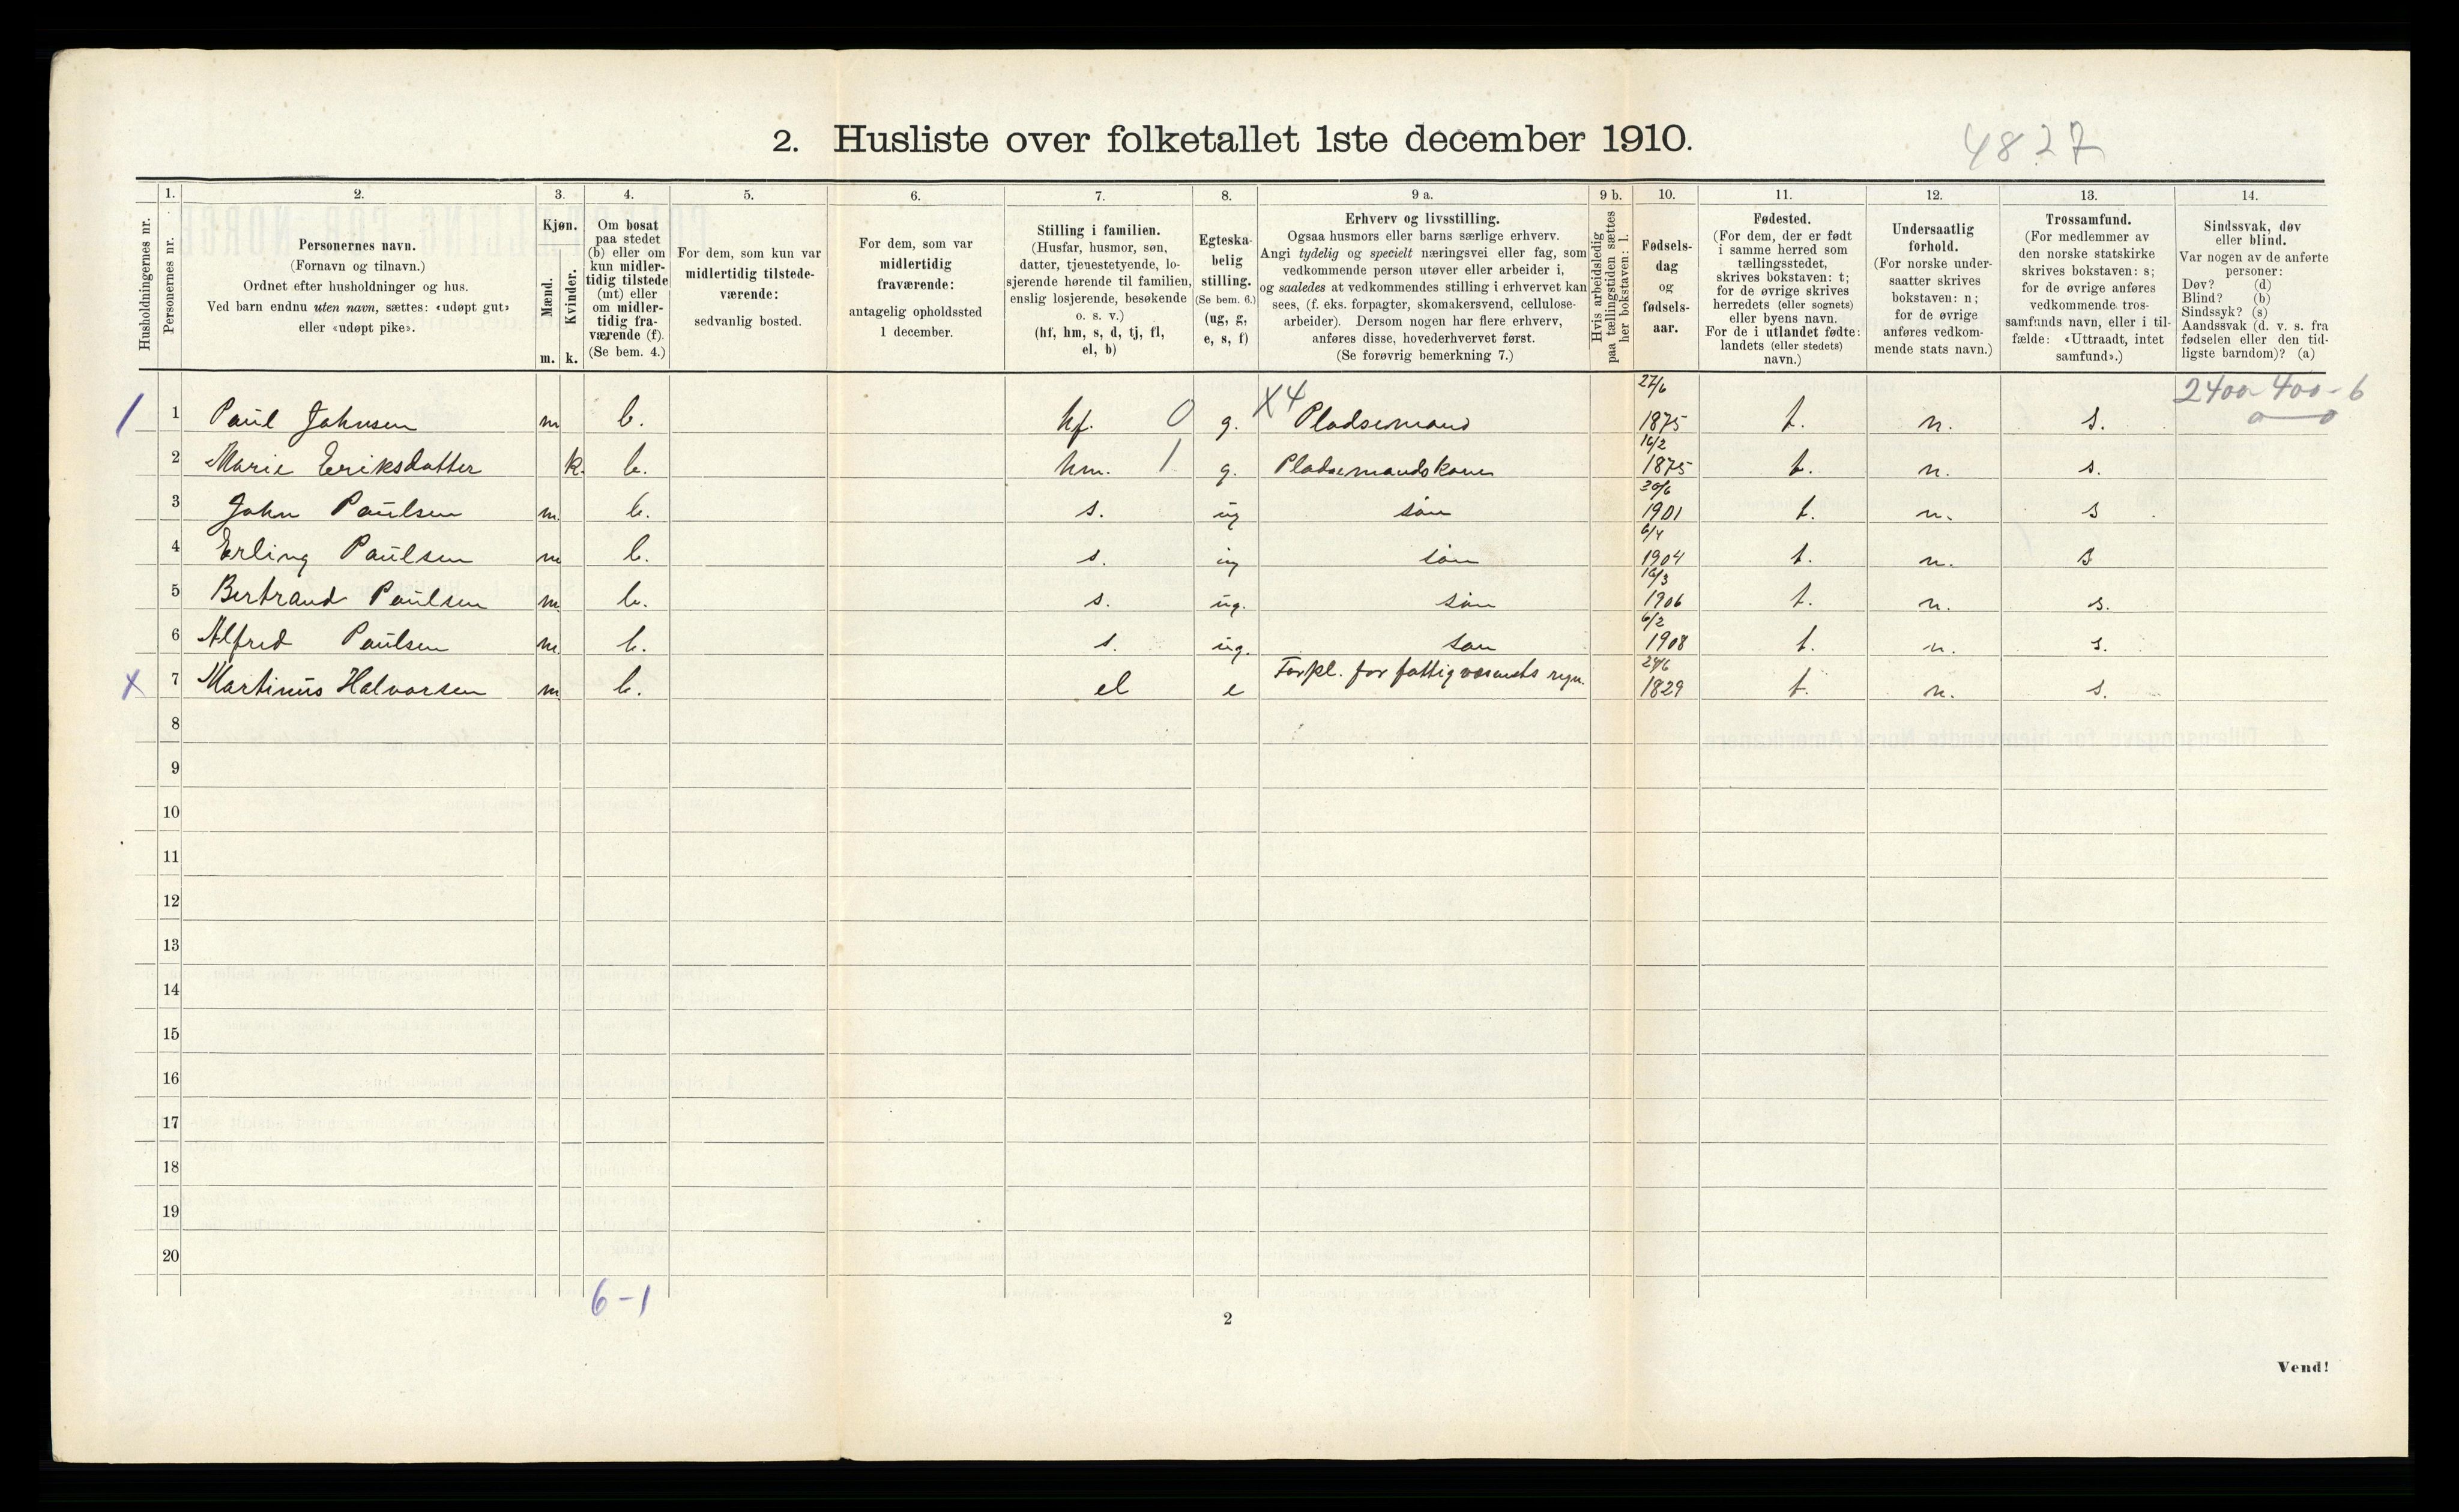 2. Husliste over folketallet 1ste december 1910.
4827
Husholdningernes nr.
1.
Personernes nr.
2.
Personernes navn.
(Fornavn og tilnavn.)
Ordnet efter husholdninger og hus.
Ved barn endnu uten navn, sættes: «udøpt gut»
eller «udøpt pike».
3.
Kjøn.
Mænd.
Kvinder.
m. k.
4.
Om bosat
paa stedet
(b) eller om
kun midler-
tidig tilstede
(mt) eller
om midler-
tidig fra-
værende (f).
(Se bem. 4.)
5.
For dem, som kun var
midlertidig tilstede-
værende:
sedvanlig bosted.
6.
For dem, som var
midlertidig
fraværende:
antagelig opholdssted
1 december.
7.
Stilling i familien.
(Husfar, husmor, søn,
datter, tjenestetyende, lo-
sjerende hørende til familien,
enslig losjerende, besøkende
o. s. v.)
(hf, hm, s, d, tj, fl,
el, b)
8.
Egteska-
belig
stilling.
(Se bem. 6.)
(ug, g,
e, s, f)
9 a.
Erhverv og livsstilling.
Ogsaa husmors eller barns særlige erhverv.
Angi tydelig og specielt næringsvei eller fag, som
vedkommende person utøver eller arbeider i,
og saaledes at vedkommendes stilling i erhvervet kan
sees, (f. eks. forpagter, skomakersvend, cellulose-
arbeider). Dersom nogen har flere erhverv,
anføres disse, hovederhvervet først.
(Se forøvrig bemerkning 7.)
9 b.
Hvis arbeidsledig
paa tællingstiden sættes
her bokstaven: l.
10.
Fødsels-
dag
og
fødsels-
aar.
11.
Fødested.
(For dem, der er født
i samme herred som
tællingsstedet,
skrives bokstaven: t;
for de øvrige skrives
herredets (eller sognets)
eller byens navn.
For de i utlandet fødte:
landets (eller stedets)
navn.)
12.
Undersaatlig
forhold.
(For norske under-
saatter skrives
bokstaven: n;
for de øvrige
anføres vedkom-
mende stats navn.)
13.
Trossamfund.
(For medlemmer av
den norske statskirke
skrives bokstaven: s;
for de øvrige anføres
vedkommende tros-
samfunds navn, eller i til-
fælde: «Uttraadt, intet
samfund».)
14.
Sindssvak, døv
eller blind.
Var nogen av de anførte
personer:
Døv? (d)
Blind? (b)
Sindssyk? (s)
Aandssvak (d. v. s. fra
fødselen eller den tid-
ligste barndom)? (a)
2400-400-6
0 0
1 1 Paul Johnsen m b. hf. 0 g. X4 Pladsemand 27/6 1875 t. n. s.
2 Marie Eriksdatter k. b. hm. 1 g. Pladsemandskone 16/2 1875 t. n. s.
3 John Paulsen m. b. s. ug søn 20/6 1901 t. n. s
4 Erling Paulsen m b. s. ug søn 6/4 1904 t. n. s
5 Bertrand Paulsen m b. s. ug. søn 16/3 1906 t. n. s.
6 Alfred Paulsen m b. s. ug. søn 6/2 1908 t. n. s.
x 7 Martinus Halvorsen m b. el e Forpl. for fattigvæsenets regn. 24/6 1829 t. n. s.
8
9
10
11
12
13
14
15
16
17
18
19
20
6-1
2
Vend!